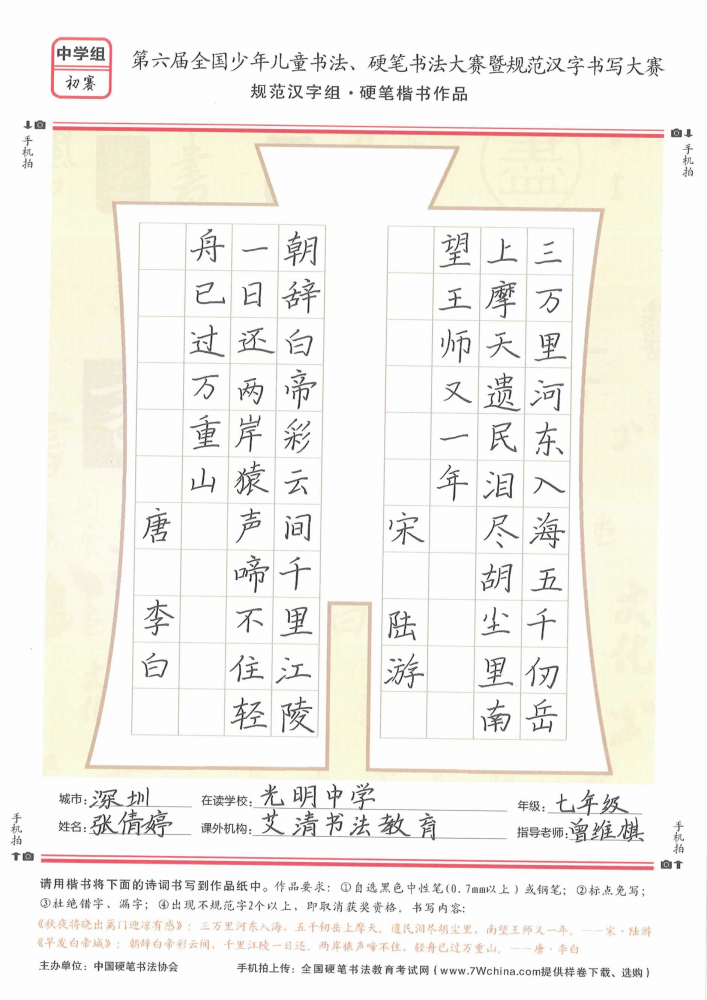 中学组
初赛
第六届全国少年儿童书法、硬笔书法大赛暨规范汉字书写大赛
规范汉字组·硬笔楷书作品
手机拍
手机拍
三万里河东入海五千仞岳
上摩天遗民泪尽胡尘里南
望王师又一年
宋 陆游
朝辞白帝彩云间千里江陵
一日还两岸猿声啼不住轻
舟已过万重山
唐 李白
城市：深圳 在读学校：光明中学 年级：七年级
姓名：张倩婷 课外机构：艾清书法教育 指导老师：曾维棋
手机拍
手机拍
请用楷书将下面的诗词书写到作品纸中。作品要求：①自选黑色中性笔(0.7mm以上)或钢笔；②标点免写；
③杜绝错字、漏字；④出现不规范字2个以上，即取消获奖资格。书写内容：
《秋夜将晓出篱门迎凉有感》：三万里河东入海，五千仞岳上摩天。遗民泪尽胡尘里，南望王师又一年。——宋·陆游
《早发白帝城》：朝辞白帝彩云间，千里江陵一日还。两岸猿声啼不住，轻舟已过万重山。——唐·李白
主办单位：中国硬笔书法协会 手机拍上传：全国硬笔书法教育考试网（www.7Wchina.com提供样卷下载、选购）